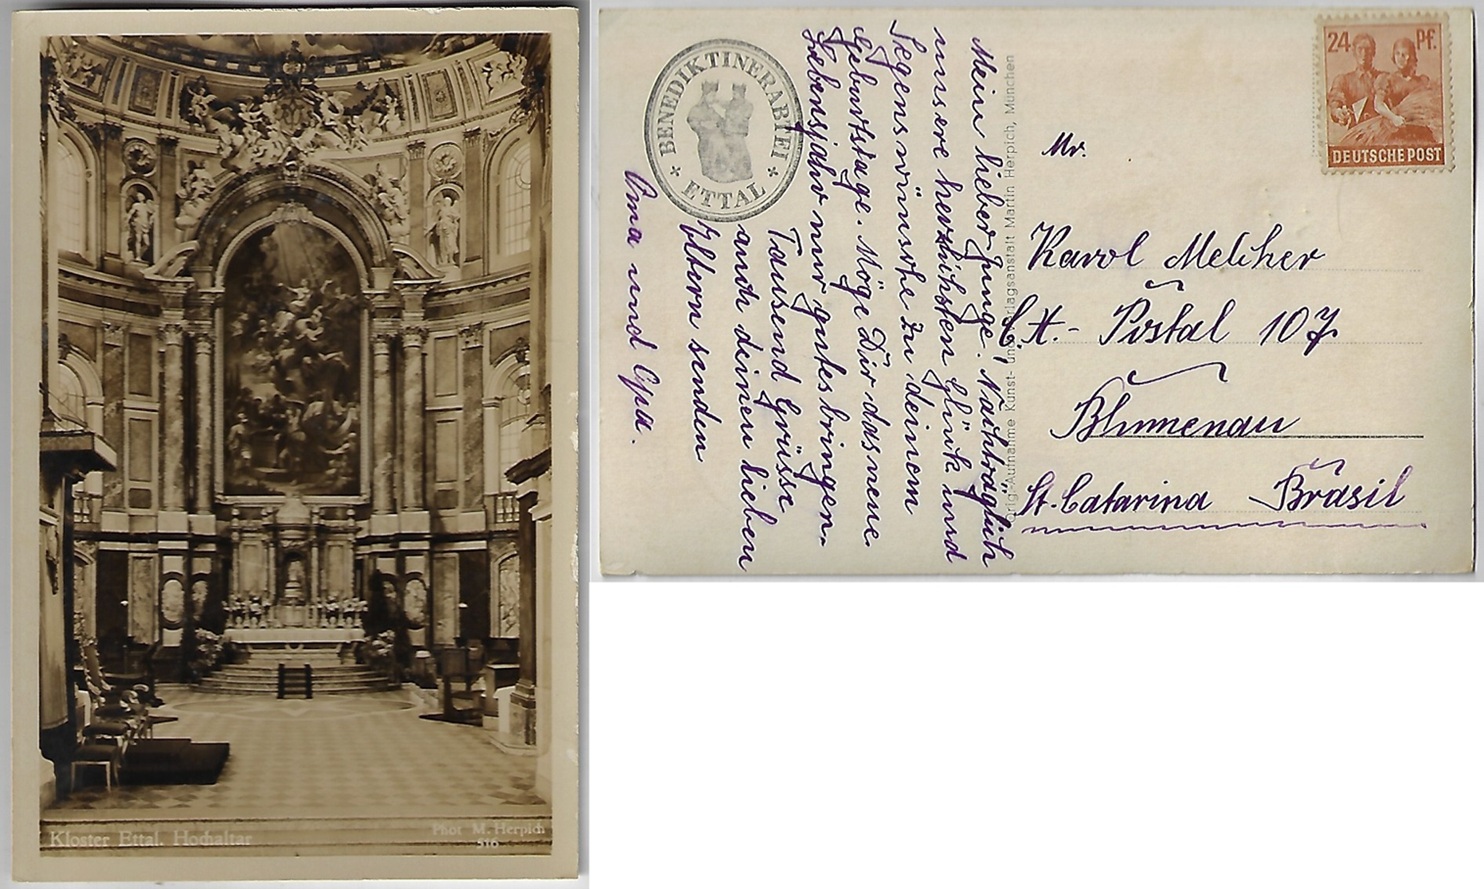 Kloster Ettal. Hochaltar
Phot M. Herpich
516
BENEDIKTINERABTEI
ETTAL
Mein lieber Junge. Nachträglich
unsere herzlichsten Glück und
Segenswünsche zu deinem
Geburtstage. Möge Dir das neue
Lebensjahr nur gutes bringen.
Tausend Grüsse
auch deinen lieben
Eltern senden
Oma und Opa.
Orig.-Aufnahme Kunst- und Verlagsanstalt Martin Herpich, München
24 Pf.
DEUTSCHE POST
Mr.
Karol Melcher
C. A. - Postal 107
Blumenau
St. Catarina Brasil